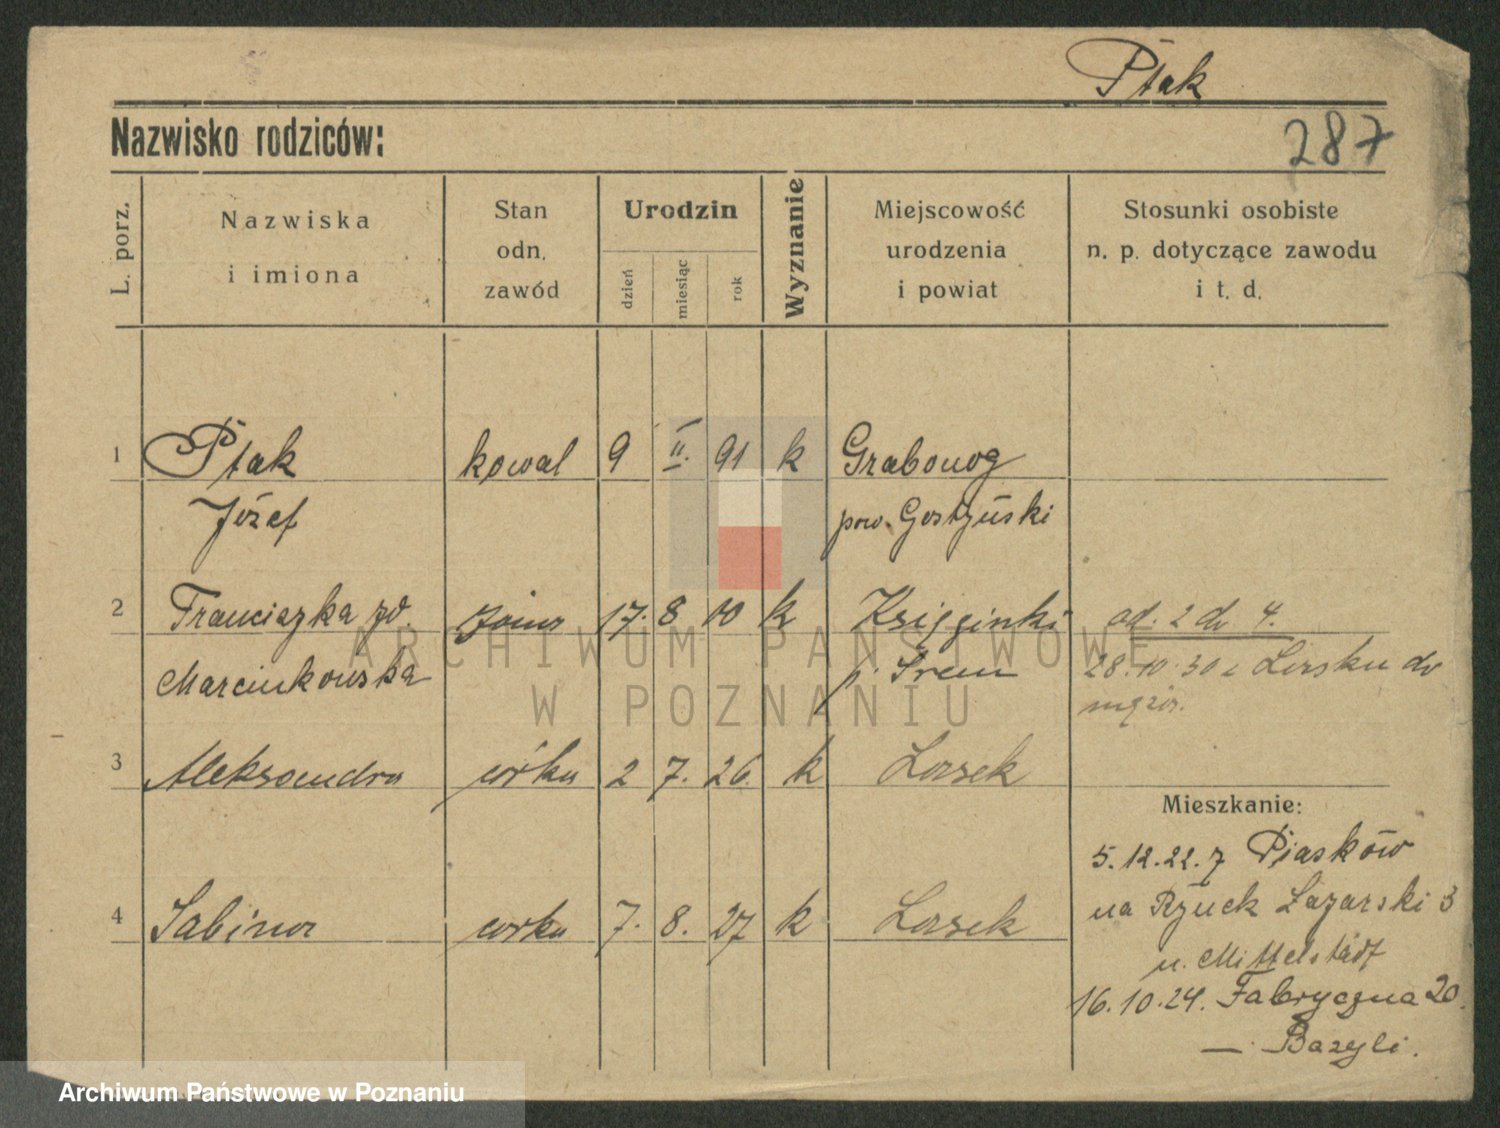 Ptak
287
Nazwisko rodziców:
L. porz.
Nazwiska
i imiona
Stan
odn.
zawód
Urodzin
dzień
miesiąc
rok
Wyznanie
Miejscowość
urodzenia
i powiat
Stosunki osobiste
n. p. dotyczące zawodu
i t. d.
1 Ptak kowal 9 II. 91 k Grabonog
Józef pow. Gostyński
2 Franciszka zd. żona 17. 8 00 k Książginki od. 2 do 4.
Marcinkowska p. Śrem 28.10.30 z Lasku do
męża.
3 Aleksandra córka 2 7. 26. k Lasek
Mieszkanie:
5.12.22. z Piasków
na Rynek Łazarski 3
4 Sabina córka 7. 8. 27 k Lasek
u. Mittelstädt
16.10.24. Fabryczna 20.
— Bazyli.
ARCHIWUM PAŃSTWOWE
W POZNANIU
Archiwum Państwowe w Poznaniu